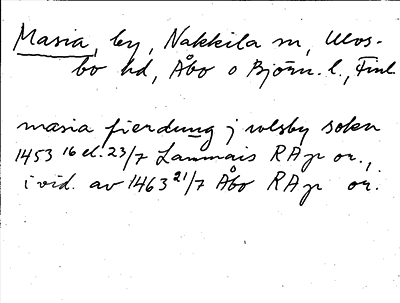 Masia, by, Nakkila sn, Ulvs-
bo hd, Åbo o Björn. l., Finl
masia fierdung j wlsby sokn
1453 16 el. 23/7 Lammais RAp or.,
i vid. av 1463 21/7 Åbo RAp or.